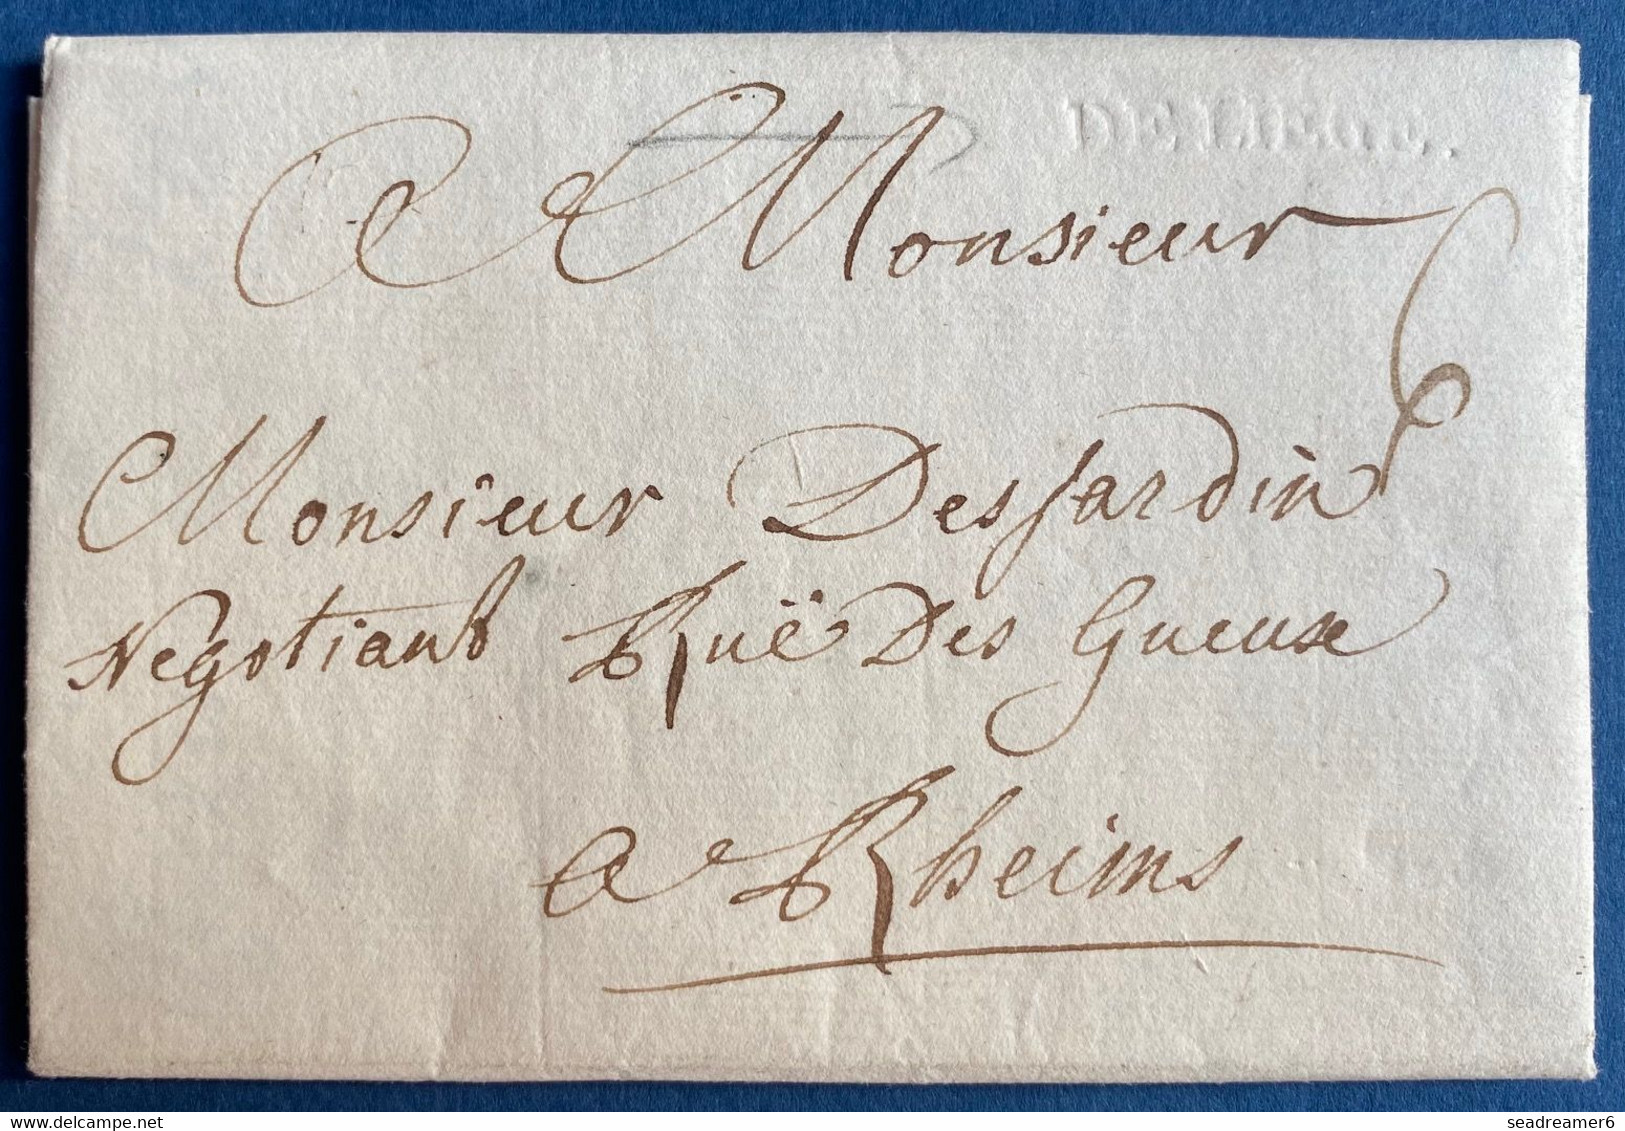 DE LIEGE.
A Monsieur
6
Monsieur Desjardin
Negotiant Ruë Des Gueuse
a Rheims
seadreamer6